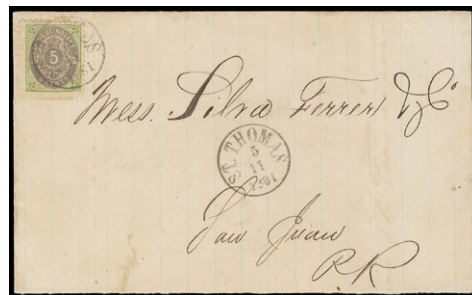 5
Mess. Silva Ferrer & Co
ST. THOMAS
5
11
1881
San Juan
P.R